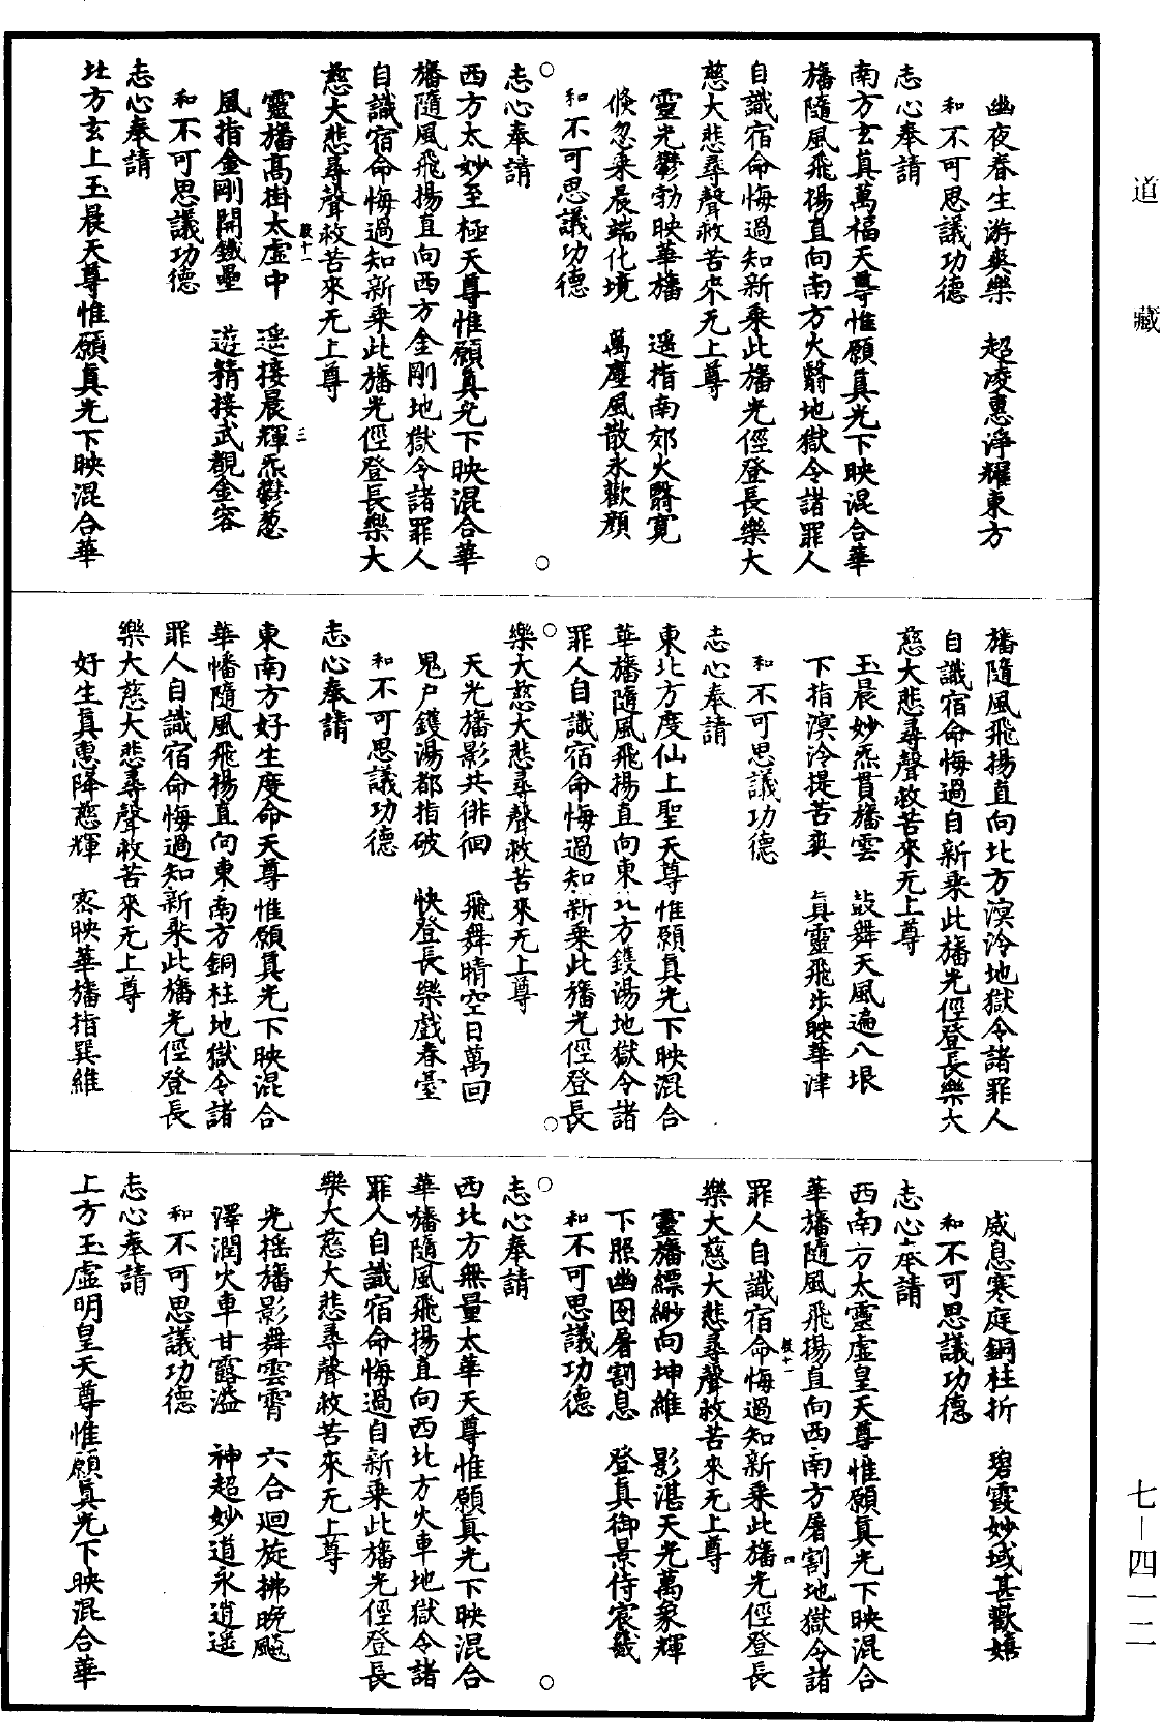 道藏
七—四一二
幽夜春生游爽樂　超凌惠淨耀東方
和不可思議功德
志心奉請
南方玄真萬福天尊惟願真光下映混合華
旛隨風飛揚直向南方火翳地獄令諸罪人
自識宿命悔過知新乘此旛光徑登長樂大
慈大悲尋聲救苦來无上尊
靈光鬱勃映華旛　遥指南郊火翳寬
倏忽乘晨端化境　萬塵風散永歡顔
和不可思議功德
志心奉請
西方太妙至極天尊惟願真光下映混合華
旛隨風飛揚直向西方金剛地獄令諸罪人
自識宿命悔過知新乘此旛光徑登長樂大
慈大悲尋聲救苦來无上尊
殷十一　三
靈旛高掛太虛中　遥接晨輝炁鬱葱
風指金剛開鐵壘　遊精接武觀金容
和不可思議功德
志心奉請
北方玄上玉晨天尊惟願真光下映混合華
旛隨風飛揚直向北方溟泠地獄令諸罪人
自識宿命悔過自新乘此旛光徑登長樂大
慈大悲尋聲救苦來无上尊
玉晨妙炁貫旛雲　鼓舞天風遍八垠
下指溟泠提苦爽　真靈飛步映華津
和不可思議功德
志心奉請
東北方度仙上聖天尊惟願真光下映混合
華旛隨風飛揚直向東北方鑊湯地獄令諸
罪人自識宿命悔過知新乘此旛光徑登長
樂大慈大悲尋聲救苦來无上尊
天光旛影共徘徊　飛舞晴空日萬回
鬼户鑊湯都指破　快登長樂戲春臺
和不可思議功德
志心奉請
東南方好生度命天尊惟願真光下映混合
華幡隨風飛揚直向東南方銅柱地獄令諸
罪人自識宿命悔過知新乘此旛光徑登長
樂大慈大悲尋聲救苦來无上尊
好生真惠降慈輝　密映華旛指巽維
威息寒庭銅柱折　碧霞妙域甚歡嬉
和不可思議功德
志心奉請
西南方太靈虛皇天尊惟願真光下映混合
華旛隨風飛揚直向西南方屠割地獄令諸
殷十一　四
罪人自識宿命悔過知新乘此旛光徑登長
樂大慈大悲尋聲救苦來无上尊
靈旛縹緲向坤維　影湛天光萬象輝
下照幽囹屠割息　登真御景侍宸畿
和不可思議功德
志心奉請
西北方無量太華天尊惟願真光下映混合
華旛隨風飛揚直向西北方火車地獄令諸
罪人自識宿命悔過自新乘此旛光徑登長
樂大慈大悲尋聲救苦來无上尊
光摇旛影舞雲霄　六合迴旋拂晚飈
澤潤火車甘露溢　神超妙道永逍遥
和不可思議功德
志心奉請
上方玉虛明皇天尊惟願真光下映混合華